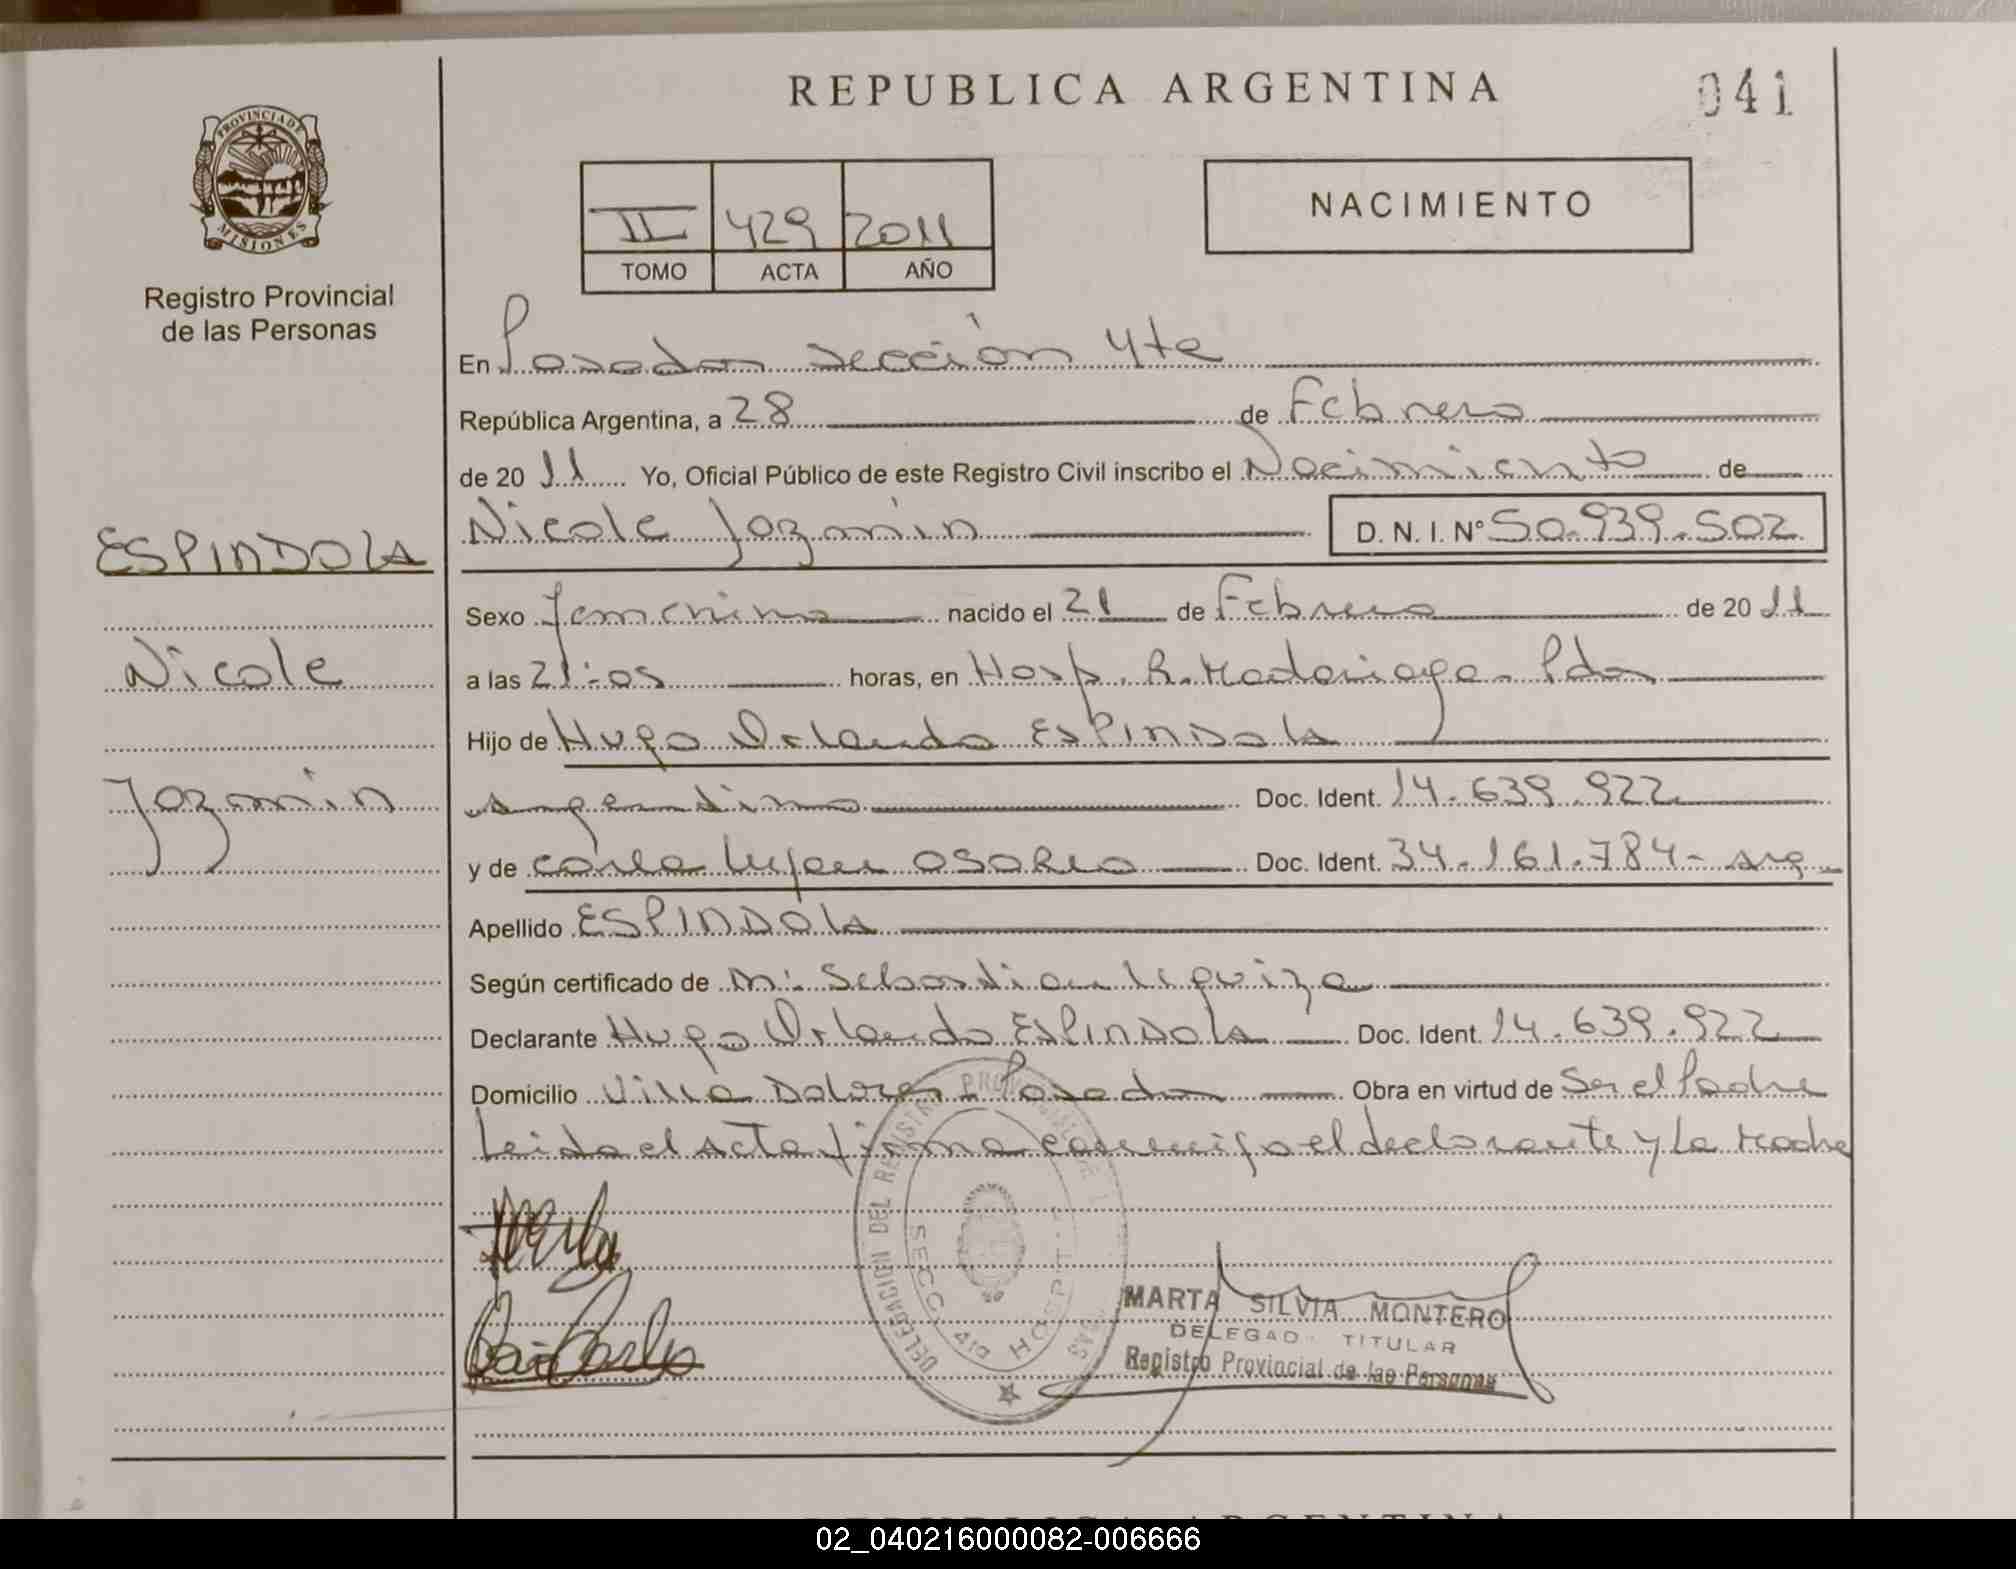 REPUBLICA ARGENTINA
041
PROVINCIA DE
MISIONES
Registro Provincial
de las Personas
II 429 2011
TOMO ACTA AÑO
NACIMIENTO
En Posadas sección 4ta
República Argentina, a 28 de Febrero
de 2011 Yo, Oficial Público de este Registro Civil inscribo el Nacimiento de
ESPINDOLA
Nicole
Jazmín
Nicole Jazmín D. N. I. N° 50.939.502
Sexo Femenino nacido el 21 de Febrero de 2011
a las 21:05 horas, en Hosp. R. Madariaga - Pdas
Hijo de Hugo Orlando ESPINDOLA
argentino Doc. Ident. 14.639.922
y de Carla Lujan OSORIO Doc. Ident. 34.161.784 - arg
Apellido ESPINDOLA
Según certificado de M: Sebastian Urquiza
Declarante Hugo Orlando ESPINDOLA Doc. Ident. 14.639.922
Domicilio Villa Dolores - Posadas Obra en virtud de Ser el Padre
Leida el Acta firma conmigo el declarante y La Madre
DELEGACION DEL REGISTRO PROVINCIAL DE
SECC 4ta HOSPIT
MARTA SILVIA MONTERO
DELEGAD TITULAR
Registro Provincial de las Personas
REPUBLICA ARGENTINA
02_040216000082-006666